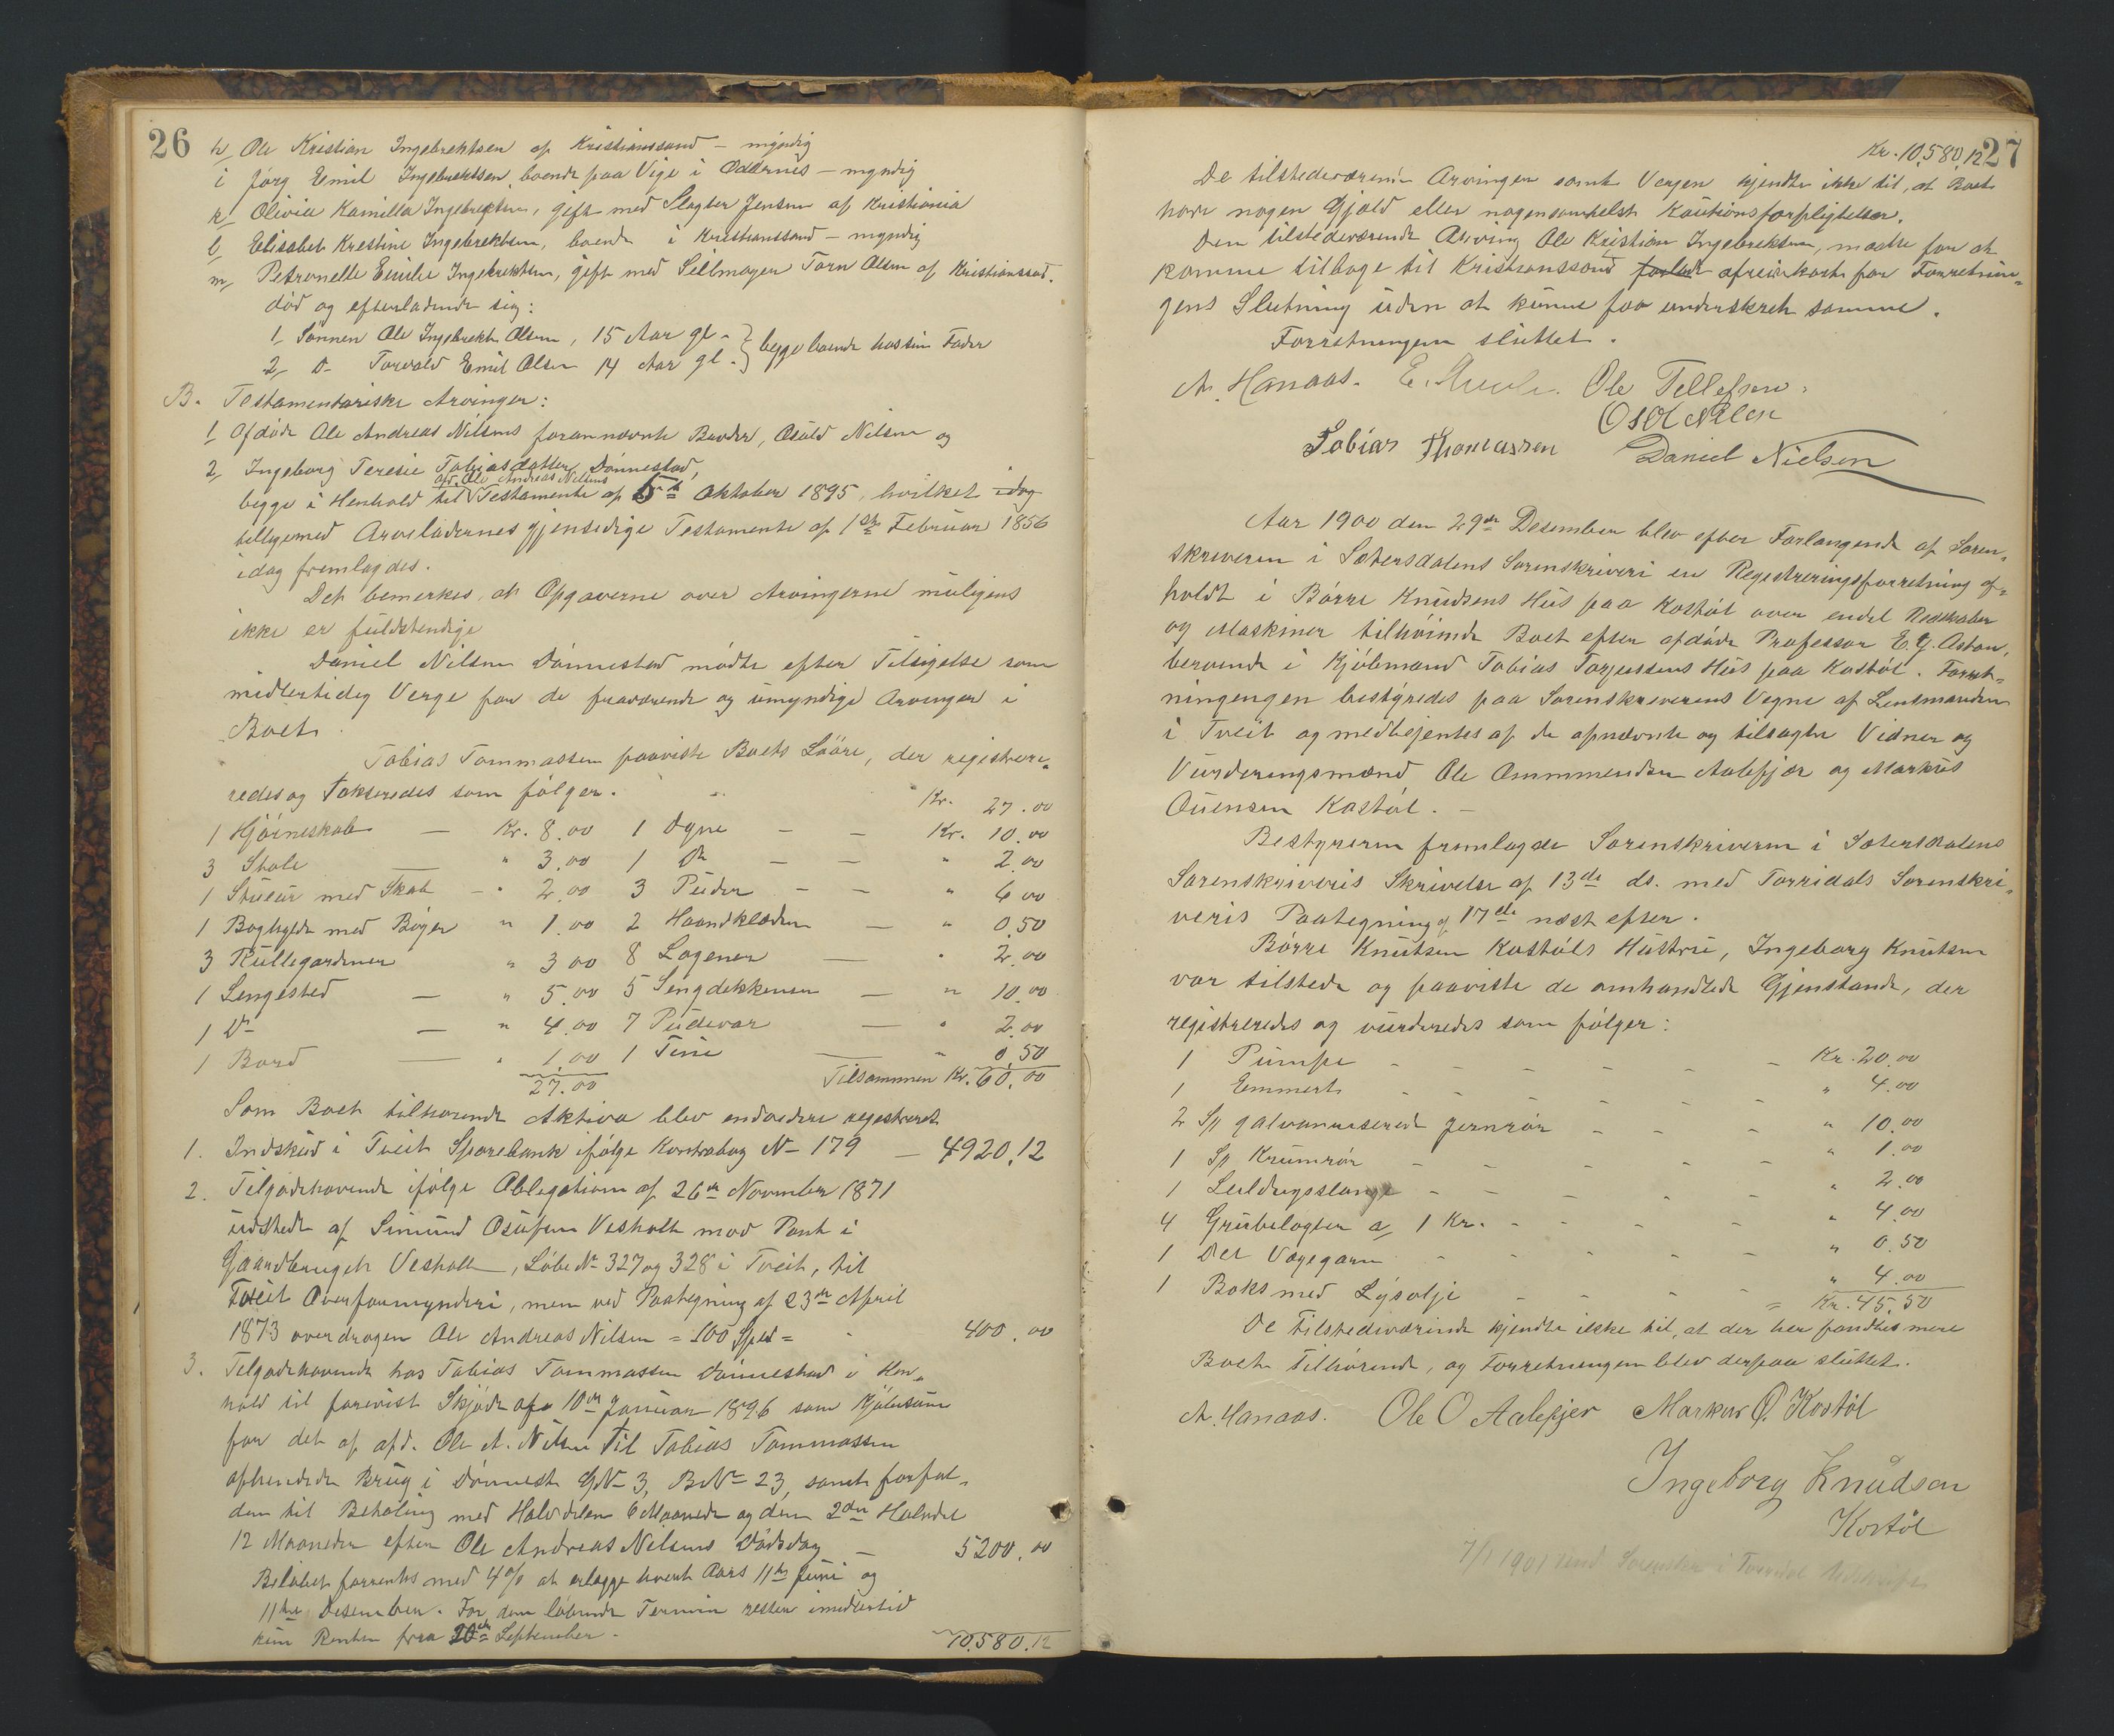 26
h, Ole Kristian Ingebrektsen af Kristianssand – myndig
i Jörg Emil Ingebrektsen, boende paa Vige i Oddernes – myndig
k, Olivia Kamilla Ingebrektsen, gift med Slagter Jensen af Kristiania
l, Elisabet Krestine Ingebrektsen, boende i Kristianssand – myndig
m, Petronelle Emilie Ingebrektsen, gift med Seilmager Torn Olsen af Kristianssand.
död og efterladende sig:
1, Sönnen Ole Ingebrekt Olsen, 15 Aar gl.
2, D– Torvald Emil Olsen 14 Aar gl. } begge boende hos sin Fader
B. Testamentariske Arvinger:
1, Afdöde Ole Andreas Nilsens forannævnte Broder, Osuld Nilsen og
2, Ingeborg Teresie Tobiasdatter Dönnestad,
afd. Ole Andreas Nilsens
begge i Henhold til Testamente af 5te Oktober 1895, hvilket idag
tilligemed Arveladernes gjensidige Testamente af 1ste Februar 1856
idag fremlagdes.
Det bemerkes at Opgaverne over Arvingerne muligens
ikke er fuldstendige
Daniel Nilsen Dönnestad mödte efter Tilsigelse som
midlertidig Verge for de fraværende og umyndige Arvinger i
Boet.
Tobias Tommassen paaviste Boets Lösöre, der registrere-
redes og takseredes som fölger.
Kr. 27.00
1 Hjörneskab — Kr. 8.00 1 Dyne — — Kr. 10.00
3 Stole — " 3.00 1 Do — — " 2.00
1 Stueur med Skab – " 2.00 3 Puder – — " 6 00
1 Boghylde med Böger " 1.00 2 Haandklæder — " 0.50
3 Rullegardiner " 3 00 8 Lagener — " 2.00
1 Sengested — " 5.00 5 Sengdekkener — " 10.00
1 Do — " 4.00 7 Pudevar — " 2.00
1 Bord — " 1.00 1 Tine — " 0.50
27.00 Tilsammen Kr. 60.00
Som Boet tilhörende Aktiva blev endvidere registreret
1. Indskud i Tveit Sparebank ifölge Kontrabog No 179 — 4920.12
2. Tilgodehavende ifölge Obligation af 26de November 1871
udstedt af Simund Osufsen Vesholt mod Pant i
Gaardbruget Vesholt, Löbe No 327 og 328 i Tveit, til
Tveit Overformynderi, men ved Paategning af 23de April
1873 overdragen Ole Andreas Nilsen = 100 Spd = 400.00
3. Tilgodehavende hos Tobias Tommassen Dönnestad i Hen-
hold til forevist Skjöde af 10de Januar 1896 som Kjöbesum
for det af afd. Ole A. Nilsen til Tobias Tommassen
afhendede Brug i Dönnest. GNo 3, BNo 23, samt forfal-
den til Betaling med Halvdelen 6 Maaneder og den 2den Halvdel
12 Maaneder efter Ole Andreas Nilsens Dödsdag — 5200.00
Belöbet forrentes med 4% at erlægge hvert Aars 11te Juni og
11te Desember. For den löbende Termin rester imidlertid
kun Renten fra 20de September.
10.580.12
27
Kr. 10,580,12
De tilstedeværende Arvinger samt Vergen kjendte ikke til, at Boet
havde nogen Gjæld eller nogensomhelst Kautionsforpligtelser.
Den tilstedeværende Arving Ole Kristian Ingebrektsen, maatte for at
komme tilbage til Kristianssand forlade afreise kort för Forretnin-
gens Slutning uden at kunne faa underskrevet samme.
Forretningen sluttet.
A. Hanaas. Ole Tellefsen.
Osold Nilsen
Tobias Thomassen Daniel Nielsen
Aar 1900 den 29de Desember blev efter Forlangende af Soren-
skriveren i Sætersdalens Sorenskriveri en Registreringsforretning af-
holdt i Börre Knudsens Hus paa Kostöl over endel Redskaber
og Maskiner tilhörende Boet efter afdöde Professor E. G. Aston,
beroende i Kjöbmand Tobias Torjussens Hus paa Kostöl. Forret-
ningengen bestyredes paa Sorenskriverens Vegne af Lensmanden
i Tveit og medbetjentes af de opnævnte og tilsagte Vidner og
Vurderingsmænd Ole Ommundsen Aalefjær og Markus
Ouensen Kostöl. –
Bestyreren fremlagde Sorenskriveren i Sætersdalens
Sorenskriveris Skrivelse af 13de ds. med Torridals Sorenskri-
veris Paategning af 17de næst efter.
Börre Knutsen Kostöls Hustru, Ingeborg Knutsen
var tilstede og paaviste de omhandlede Gjenstande, der
registreredes og vurderedes som fölger:
1 Pumpe – – – – Kr. 20.00
1 Emmert – – – – " 4.00
2 Sp galvaniserede Jernrör – – – " 10.00
1 Sp Krumrör – – – – " 1.00
1 Ledningsslange – – – – " 2.00
4 Grubelogter a, 1 Kr. – – – " 4.00
1 Del Vægegarn – – – – " 0.50
1 Boks med Lysolje – – – " 4.00
= Kr. 45.50
De tilstedeværende kjendte ikke til, at der her fandtes mere
Boet tilhörende, og Forretningen blev derpaa sluttet.
A. Hanaas. Ole O Aalefjer Markus O. Kostöl
Ingeborg Knudsen
Kostöl
7/1 1901 Sorenskr. i Torridal